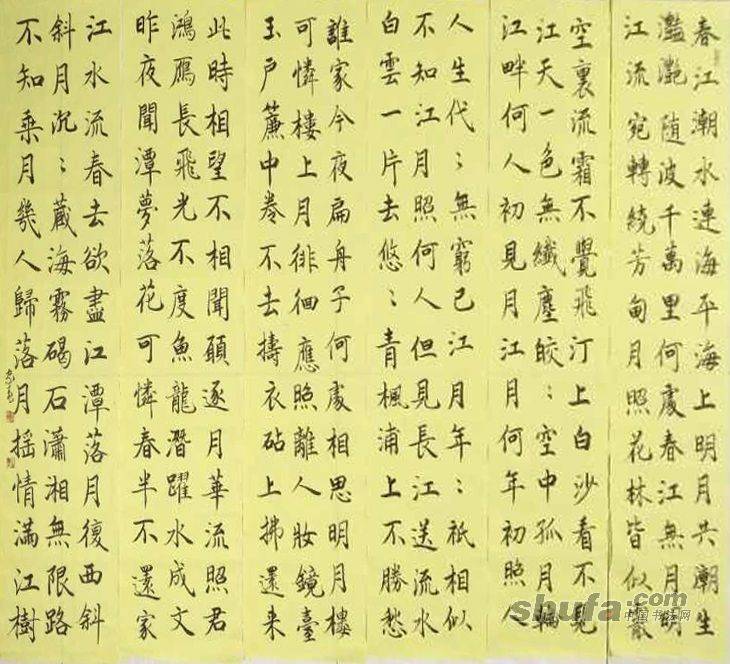 春江潮水連海平海上明月共潮生
灩灩随波千萬里何處春江無月明
江流宛轉繞芳甸月照花林皆似霰
空裏流霜不覺飛汀上白沙看不見
江天一色無纖塵皎〻空中孤月輪
江畔何人初見月江月何年初照人
人生代〻無窮已江月年〻祇相似
不知江月照何人但見長江送流水
白雲一片去悠〻青楓浦上不勝愁
誰家今夜扁舟子何處相思明月樓
可憐樓上月徘徊應照離人妝鏡臺
玉戶簾中卷不去擣衣砧上拂還来
此時相望不相聞願逐月華流照君
鴻雁長飛光不度魚龍潛躍水成文
昨夜聞潭夢落花可憐春半不還家
江水流春去欲盡江潭落月復西斜
斜月沉〻藏海霧碣石瀟湘無限路
不知乘月幾人歸落月搖情滿江樹
shufa.com
中国书法网